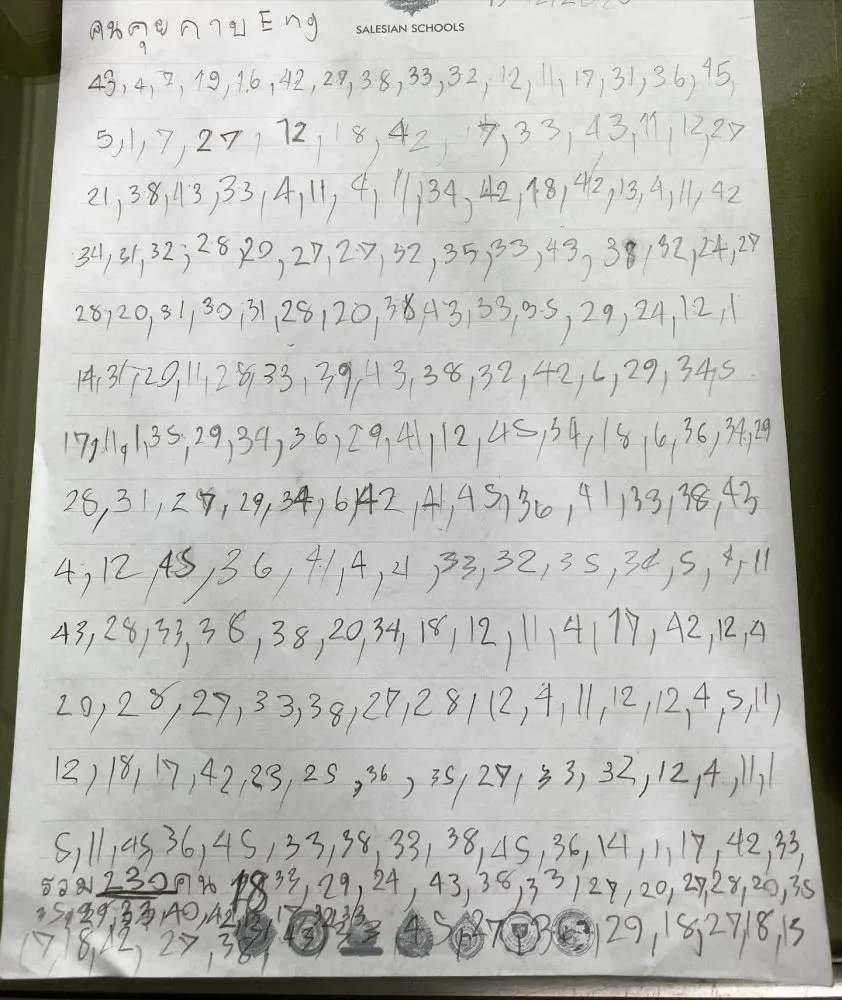 คนคุยคาบ Eng
SALESIAN SCHOOLS
43, 4, 7, 19, 16, 42, 27, 38, 33, 32, 12, 11, 17, 31, 36, 45,
5, 1, 7, 27, 12, 18, 42, 17, 33, 43, 11, 12, 27
21, 38, 43, 33, 4, 11, 4, 11, 34, 42, 18, 42, 13, 4, 11, 42
34, 31, 32, 28, 20, 27, 27, 32, 35, 33, 43, 38, 32, 24, 27
28, 20, 31, 30, 31, 28, 20, 38, 43, 33, 35, 29, 24, 12, 1
14, 31, 20, 11, 28, 33, 39, 43, 38, 32, 42, 6, 29, 34, 5
17, 11, 1, 35, 29, 34, 36, 29, 41, 12, 45, 34, 18, 6, 36, 34, 29
28, 31, 27, 29, 34, 6, 42, 41, 45, 36, 41, 33, 38, 43
4, 12, 45, 36, 41, 4, 21, 33, 32, 35, 34, 5, 4, 11
43, 28, 33, 36, 38, 20, 34, 18, 12, 11, 4, 17, 42, 12, 4
20, 28, 27, 33, 38, 27, 28, 12, 4, 11, 12, 12, 4, 5, 11,
12, 18, 17, 42, 23, 25, 36, 35, 27, 33, 32, 12, 4, 11, 1
5, 11, 45, 36, 45, 33, 38, 33, 38, 45, 36, 14, 1, 17, 42, 33,
รวม 230 คน 18 33, 29, 24, 43, 38, 33, 27, 20, 27, 28, 20, 35
35, 29, 33, 40, 42, 17, 32, 33
17, 18, 42, 27, 38, 43, 45, 27, 29, 18, 27, 18, 15